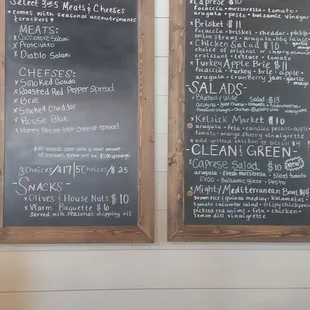 Select 3or5 Meats & Cheeses
comes with seasonal accoutrements
+ crackers
MEATS:
x Calabrese Salami
x Prosciutto
x Diablo Salami
CHEESES:
x Smoked Gouda
x Roasted Red Pepper Spread
x Brie
x Smoked Cheddar
x House Blue
x Honey Pecan Goat Cheese Spread
3 Choices/$17 | 5 Choices/$25
- SNACKS -
x Olives & House Nuts $10
x Warm Baguette $6
served with seasonal dipping oil
x Caprese $10
focaccia • mozzarella • tomato
arugula • pesto • balsamic vinegar
x Brisket $11
focaccia • brisket • cheddar • pickled
onion straws • arugula • bbq sauce
x Chicken Salad $10
choice of original
croissant • lettuce • tomato
x Turkey Apple Brie $11
focaccia • turkey • brie • apple
arugula • cranberry
- SALADS -
x Blueberry $13
x Kelsick Market $10
arugula • feta • candied pecans • apple
tomato • honey sherry vinaigrette
add grilled chicken or brisket $4
- CLEAN! GREEN -
x Caprese Salad $10
arugula • Fresh Mozzarella • Sliced tomato
EVOO • Balsamic Glaze • Pesto
x Mighty Mediterranean Bowl
brown rice + quinoa medley • Kalamatas •
tomato cucumber salad • crispy chickpeas
pickled red onions • feta • chicken
lemon dill vinaigrette